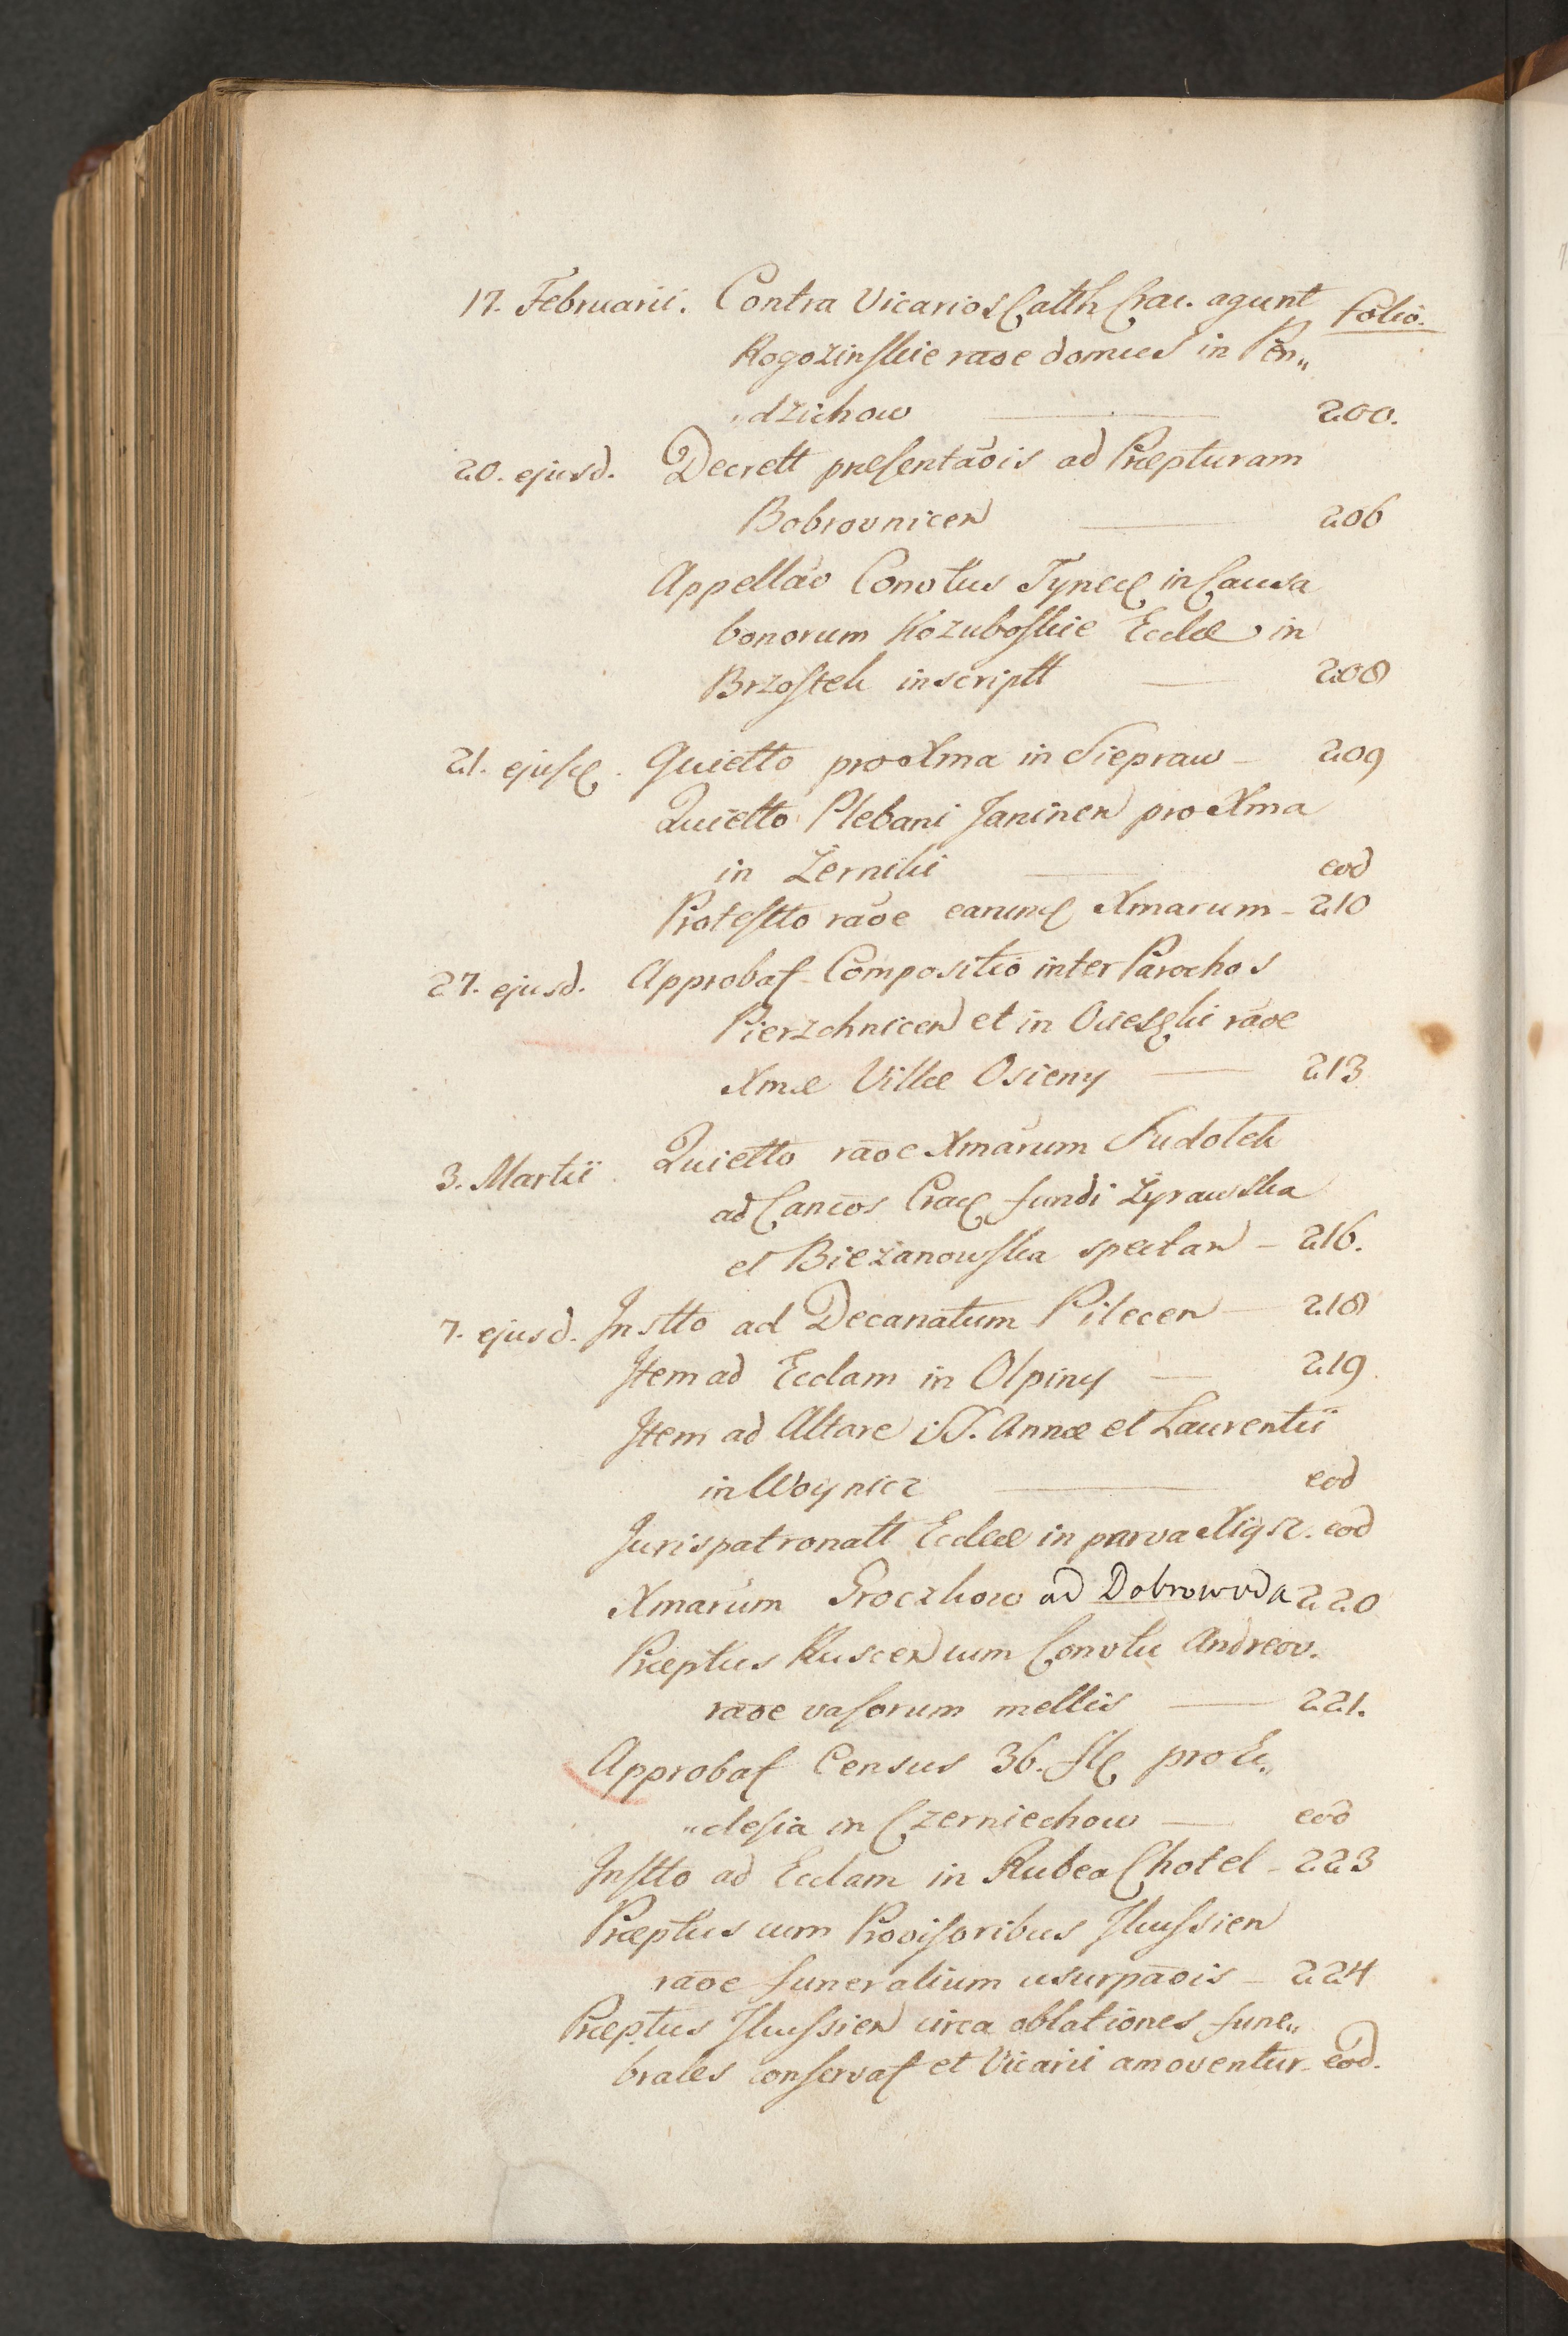 17. Februarii. Contra Vicarios Catth Crac. agunt folio.
Rogozinskie raõe domus in Pen„
„dzichow 200.
20. ejusd. Decrett præsentaõis ad Præpturam
Bobrovnicen 206
Appellaõ Convtus Tynec in Causa
bonorum Kozuboskie Eccłæ in
Brzostek inscriptt 208
21. ejusd. Quietto pro Xma in Siepraw – 209
Quietto Plebani Janinen pro Xma
in Zerniki eod
Protestto raõe earund Xmarum – 210
27. ejusd. Approbat Compositio inter Parochos
Pierzchnicen et in Ociesęki raõe
Xmæ Villæ Osieny 213
3. Martii Quietto raõe Xmarum Sudolek
ad Cancos Crac fundi Zyrawska
et Biezanowska spectan – 216.
7. ejusd. Instto ad Decanatum Pilecen – 218
Item ad Ecclam in Olpiny 219
Item ad Altare SS. Annæ et Laurentii
in Woynicz eod
Jurispatronatt Ecclæ in parva Xiąsz. eod
Xmarum Groczkow ad Dobrowoda 220
Præptus Kuscen cum Convtu Andreov.
raõe vasorum mellis 221.
Approbat Census 36. fl pro Ec„
„clesia in Czerniechow eod
Instto ad Ecclam in Rubea Chotel – 223
Præptus cum Provisoribus Ilkussien
raõe funeralium usurpaõis – 224
Præptus Ilkussien circa oblationes fune„
brales conservat et Vicarii amoventur. eod.